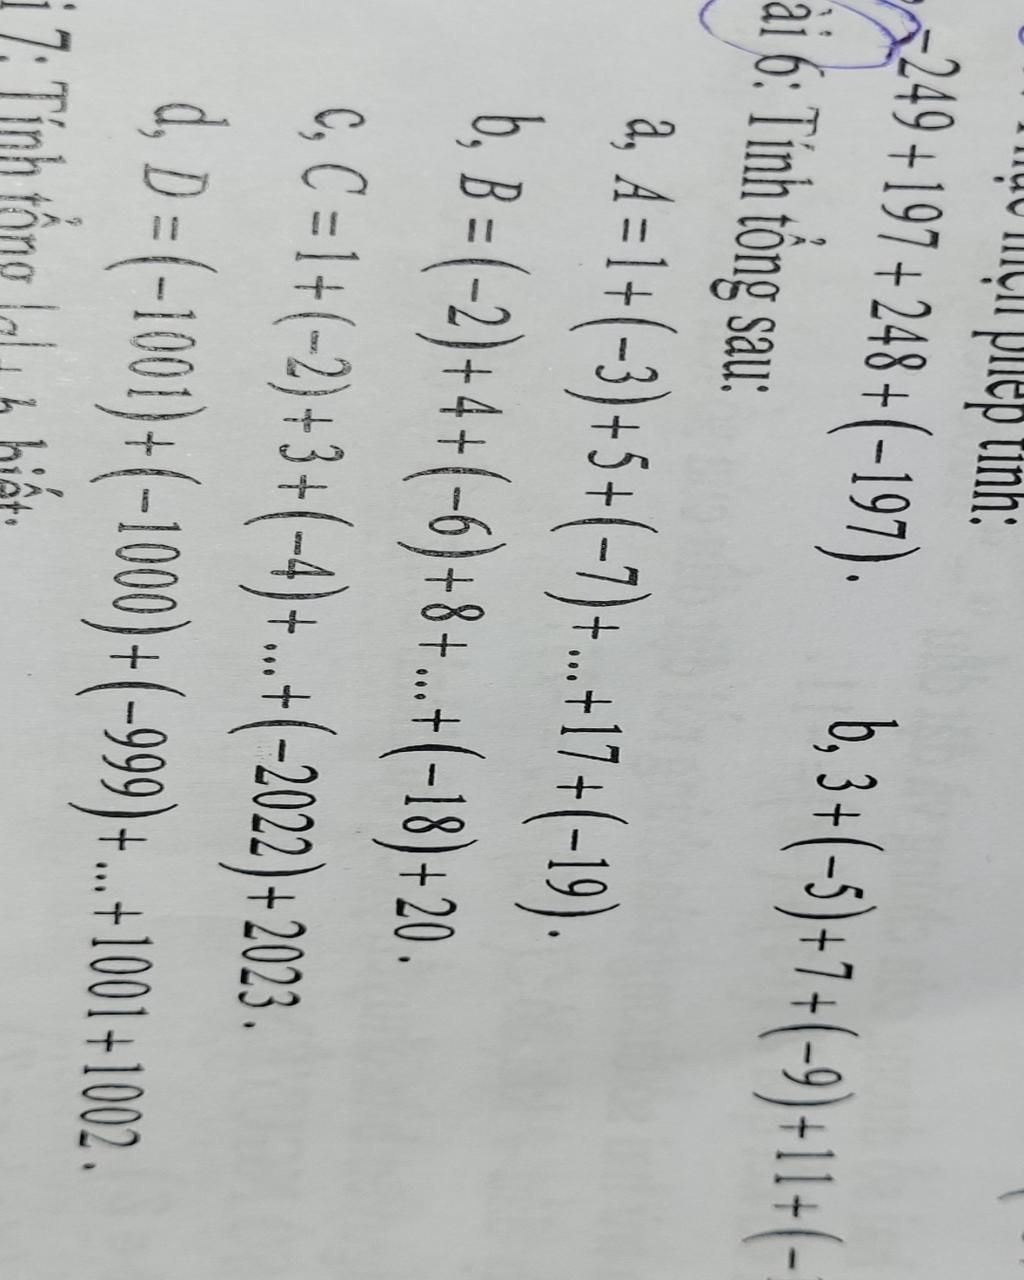 phép tính:
-249 + 197 + 248 + (-197). b, 3 + (-5) + 7 + (-9) + 11 + (-
ài 6: Tính tổng sau:
a, A = 1 + (-3) + 5 + (-7) + ... + 17 + (-19).
b, B = (-2) + 4 + (-6) + 8 + ... + (-18) + 20.
c, C = 1 + (-2) + 3 + (-4) + ... + (-2022) + 2023.
d, D = (-1001) + (-1000) + (-999) + ... + 1001 + 1002.
i 7: Tính tổng biết: